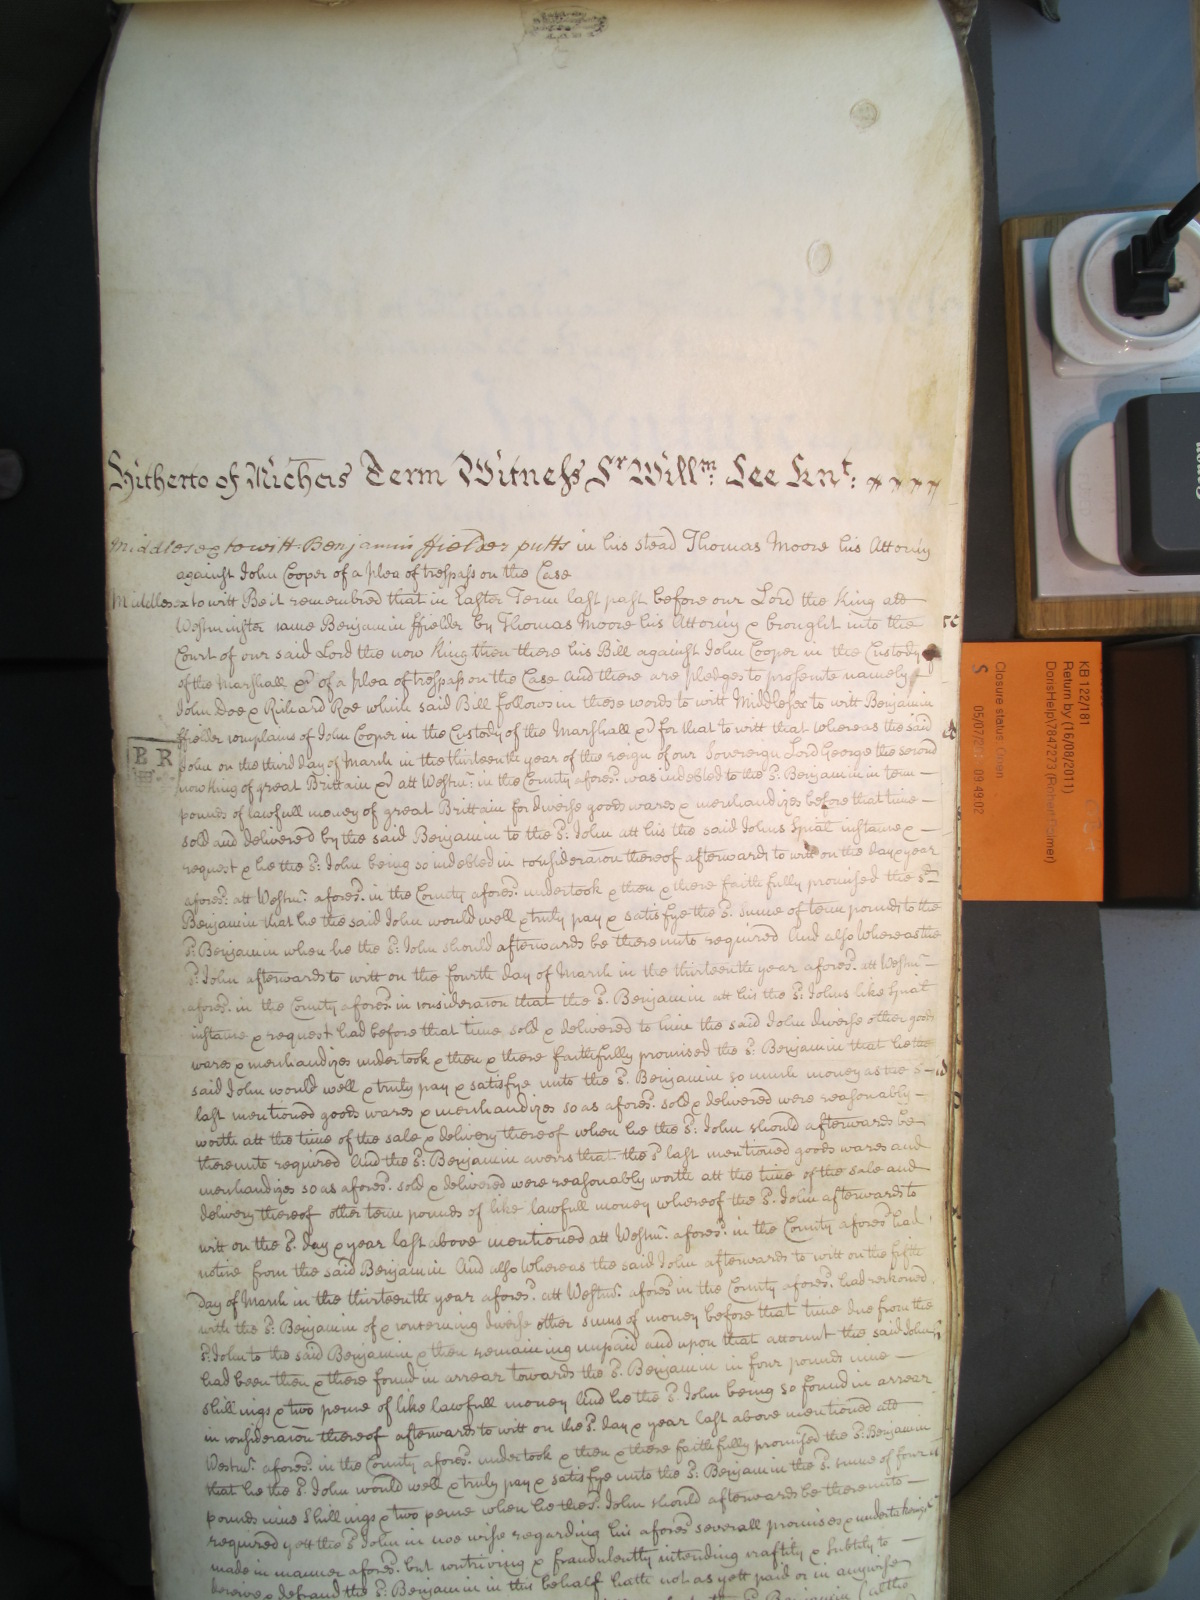 Hitherto of Michers Term Witness Sr. Willm: Lee Knt:
Middlesex to witt Benjamin ffielder putts in his stead Thomas Moore his Attorny
against John Cooper of a plea of trespass on the Case
Middlesex to witt Be it remembred that in Easter Term last past before our Lord the King att
Westminster came Benjamin ffielder by Thomas Moore his Attorny & brought into the
Court of our said Lord the now King then there his Bill against John Cooper in the Custody
of the Marshall &c of a plea of trespass on the Case And there are pledges to prosecute namely
John Doe & Richard Roe which said Bill follows in these words to witt Middlesex to witt Benjamin
ffielder complains of John Cooper in the Custody of the Marshall &c for that to witt that whereas the said
John on the third day of March in the thirteenth year of the reign of our Sovereign Lord George the second
now King of great Brittain &c att Westmr. in the County afores. was indebted to the s. Benjamin in tenn
pounds of lawfull money of great Brittain for diverse goods wares & merchandizes before that time
sold and delivered by the said Benjamin to the s: John att his the said Johns spial instance &
request & he the s: John being so indebted in consideracon thereof afterwards to witt on the day & year
afores. att Westmr. afores. in the County afores. undertook & then & there faithfully promised the sd
Benjamin that he the said John would well & truly pay & satisfye the s. summe of tenn pounds to the
s: Benjamin when he the s: John should afterwards be thereunto required And also Whereas the
s: John afterwards to witt on the fourth day of March in the thirteenth year afores. att Westmr.
afores. in the County afores. in consideracon that the s. Benjamin att his the s: Johns like spial
instance & request had before that time sold & delivered to him the said John diverse other goods
wares & merchandizes undertook & then & there faithfully promised the s: Benjamin that he the
said John would well & truly pay & satisfye unto the s. Benjamin so much money as the s.
last mentioned goods wares & merchandizes so as afores. sold & delivered were reasonably
worth att the time of the sale & delivery thereof when he the s: John should afterwards be
thereunto required And the s: Benjamin averrs that the s. last mentioned goods wares and
merchandizes so as afores. sold & delivered were reasonably worth att the time of the sale and
delivery thereof other tenn pounds of like lawfull money whereof the s. John afterwards to
witt on the s. day & year last above mentioned att Westmr. afores. in the County afores. had
notice from the said Benjamin And also Whereas the said John afterwards to witt on the fifth
day of March in the thirteenth year afores. att Westmr. afores in the County afores. had reckoned
with the s: Benjamin of & concerning diverse other sums of money before that time due from the
s. John to the said Benjamin & then remaining unpaid and upon that account the said John
had been then & there found in arrear towards the s. Benjamin in four pounds nine
shillings & two pence of like lawfull money And he the s. John being so found in arrear
in consideracon thereof afterwards to witt on the s. day & year last above mentioned att
Westmr. afores. in the County afores. undertook & then & there faithfully promised the s. Benjamin
that he the s. John would well & truly pay & satisfye unto the s: Benjamin the s. summe of four
pounds nine shillings & two pence when he the s. John should afterwards be thereunto
required yett the s. John in noe wise regarding his afores severall promises & undertakeings
made in manner afores. but contriving & fraudulently intending craftily & subtily to
deceive & defraud the s: Benjamin in this behalf hath not as yett paid or in anywise
B R
KB 122/181
Return by (16/08/2011)
DorisHelp\7847273 (Robert Palmer)
Closure status: Open
S
05/07/2 09:49:02
Canon